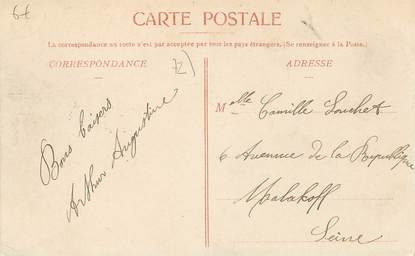 6€
CARTE POSTALE
La correspondance au recto n'est pas acceptée par tous les pays étrangers. (Se renseigner à la Poste.)
CORRESPONDANCE
ADRESSE
Bons baisers
Arthur Augustine
Melle Camille Louchet
6 Avenue de la République
Malakoff
Seine